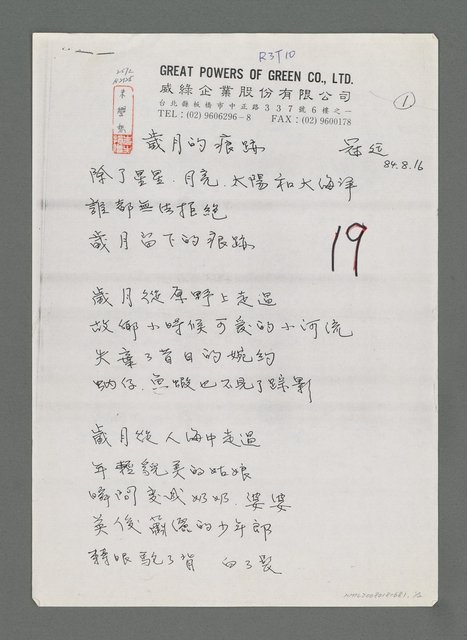 R3T10
GREAT POWERS OF GREEN CO., LTD.
威綠企業股份有限公司
台北縣板橋市中正路337號6樓之一
TEL：(02) 9606296-8 FAX：(02) 9600178
①
歲月的痕跡
84.8.16
除了星星．月亮．太陽和大海洋
誰都無法拒絕
歲月留下的痕跡
19
歲月從原野上走過
故鄉小時候可愛的小河流
失棄了昔日的婉約
蚋仔．魚蝦也不見了踪影
歲月從人海中走過
年輕貌美的姑娘
瞬間變成奶奶．婆婆
英俊瀟灑的少年郎
轉眼駝了背 白了髮